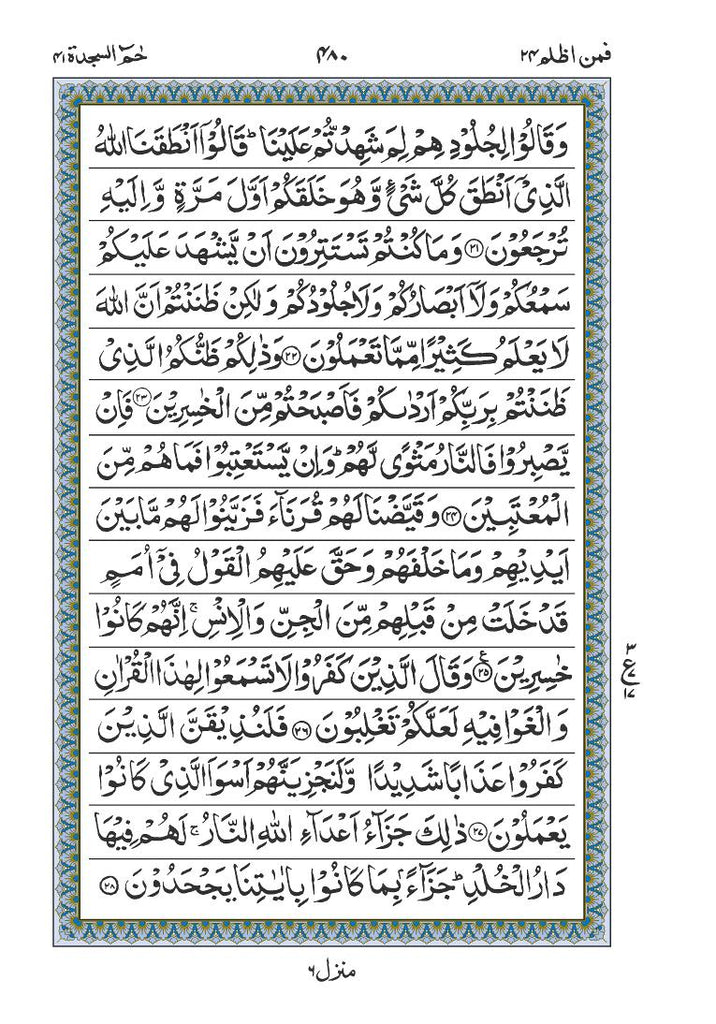 فمن اظلم ۲۴
۴۸۰
حٰمٓ السجدة ۴۱
وَقَالُوْا لِجُلُوْدِهِمْ لِمَ شَهِدْتُّمْ عَلَيْنَا ؕ قَالُوْۤا اَنْطَقَنَا اللّٰهُ
الَّذِىْۤ اَنْطَقَ كُلَّ شَىْءٍ وَّهُوَ خَلَقَكُمْ اَوَّلَ مَرَّةٍ وَّاِلَيْهِ
تُرْجَعُوْنَ ۲۱ وَمَا كُنْتُمْ تَسْتَتِرُوْنَ اَنْ يَّشْهَدَ عَلَيْكُمْ
سَمْعُكُمْ وَلَاۤ اَبْصَارُكُمْ وَلَا جُلُوْدُكُمْ وَلٰكِنْ ظَنَنْتُمْ اَنَّ اللّٰهَ
لَا يَعْلَمُ كَثِيْرًا مِّمَّا تَعْمَلُوْنَ ۲۲ وَذٰلِكُمْ ظَنُّكُمُ الَّذِىْ
ظَنَنْتُمْ بِرَبِّكُمْ اَرْدٰىكُمْ فَاَصْبَحْتُمْ مِّنَ الْخٰسِرِيْنَ ۲۳ فَاِنْ
يَّصْبِرُوْا فَالنَّارُ مَثْوًى لَّهُمْ ؕ وَاِنْ يَّسْتَعْتِبُوْا فَمَا هُمْ مِّنَ
الْمُعْتَبِيْنَ ۲۴ وَقَيَّضْنَا لَهُمْ قُرَنَآءَ فَزَيَّنُوْا لَهُمْ مَّا بَيْنَ
اَيْدِيْهِمْ وَمَا خَلْفَهُمْ وَحَقَّ عَلَيْهِمُ الْقَوْلُ فِىْۤ اُمَمٍ
قَدْ خَلَتْ مِنْ قَبْلِهِمْ مِّنَ الْجِنِّ وَالْاِنْسِ ۚ اِنَّهُمْ كَانُوْا
خٰسِرِيْنَ ۲۵ ع وَقَالَ الَّذِيْنَ كَفَرُوْا لَا تَسْمَعُوْا لِهٰذَا الْقُرْاٰنِ
وَالْغَوْا فِيْهِ لَعَلَّكُمْ تَغْلِبُوْنَ ۲۶ فَلَنُذِيْقَنَّ الَّذِيْنَ
كَفَرُوْا عَذَابًا شَدِيْدًا وَّلَنَجْزِيَنَّهُمْ اَسْوَاَ الَّذِىْ كَانُوْا
يَعْمَلُوْنَ ۲۷ ذٰلِكَ جَزَآءُ اَعْدَآءِ اللّٰهِ النَّارُ ۚ لَهُمْ فِيْهَا
دَارُ الْخُلْدِ ؕ جَزَآءًۢ بِمَا كَانُوْا بِاٰيٰتِنَا يَجْحَدُوْنَ ۲۸
۳
ع ۷
۱۷
منزل ۶